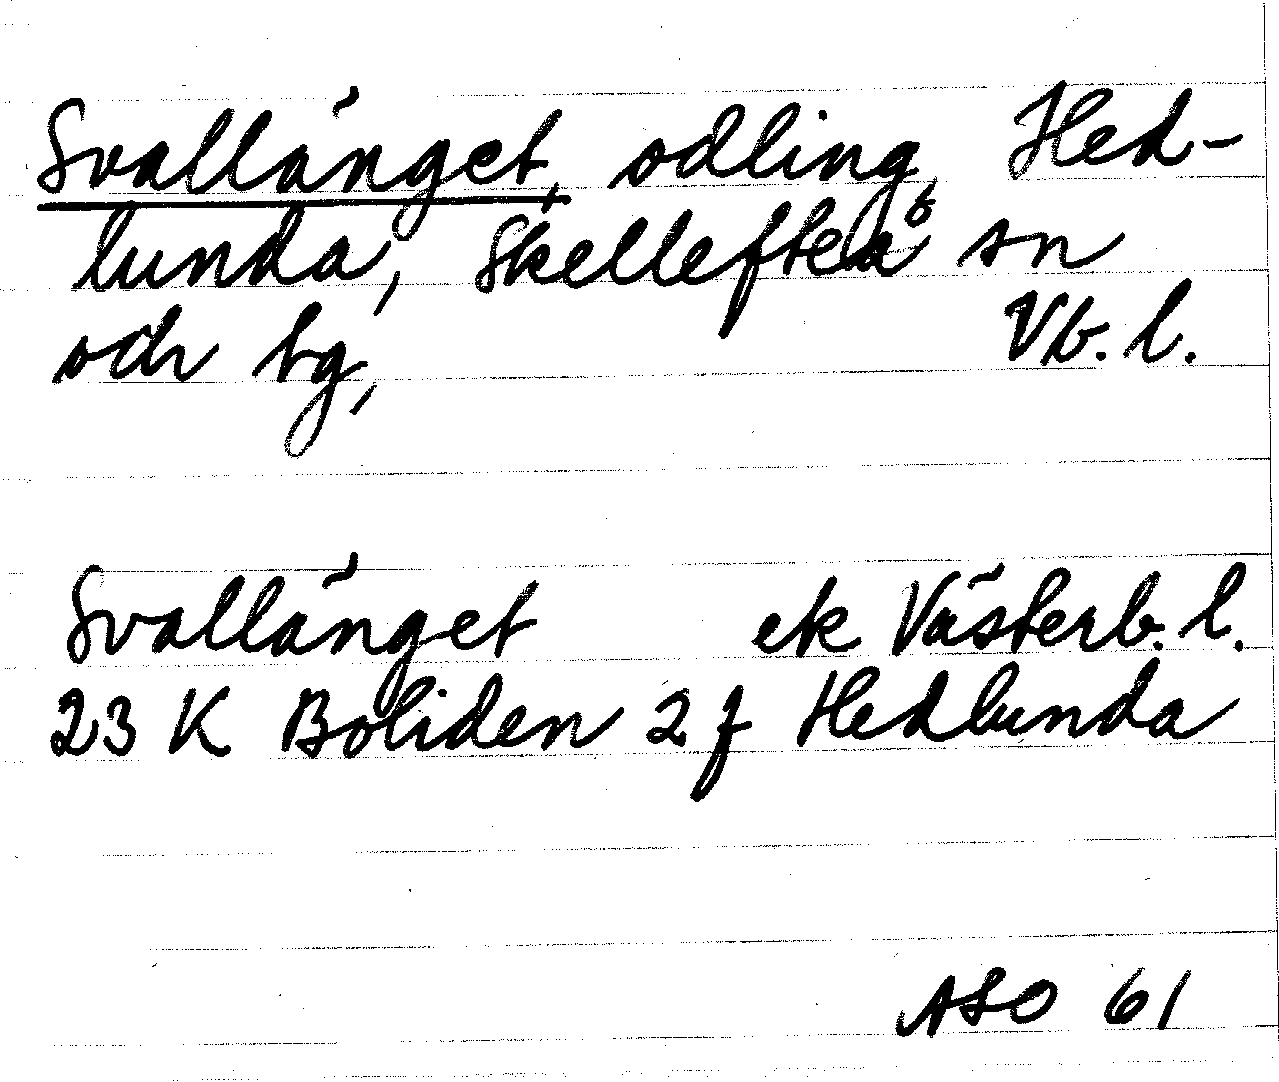 Svallänget, odling, Hed-
lunda, Skellefteå sn
och tg, Vb. l.
Svallänget ek Västerb. l.
23 K Boliden 2 f Hedlunda
ASO 61